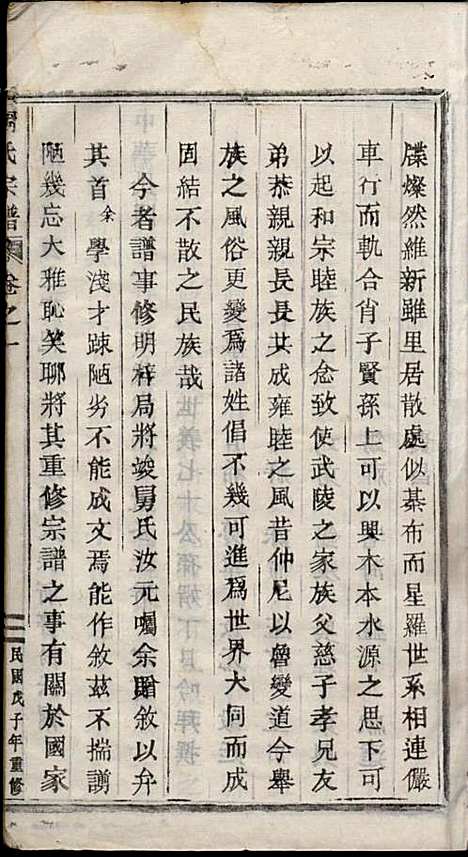 牒燦然維新雖里居散處似碁布而星羅世系相連儼
車行而軌合肖子賢孫上可以興木本水源之思下可
以起和宗睦族之念致使武陵之家族父慈子孝兄友
弟恭親親長長共成雍睦之風昔仲尼以魯變道今舉
族之風俗更變爲諸姓倡不幾可進爲世界大同而成
固結不散之民族哉
今者譜事修明梓局將竣舅氏汝元囑余贈敘以弁
其首余學淺才踈陋劣不能成文焉能作敘茲不揣謭
陋幾忘大雅恥笑聊將其重修宗譜之事有關於國家
氏宗譜 卷之一
民國戊子年重修